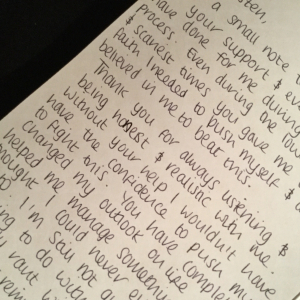 a small note
your support & ev
have done for me during
process. Even during the low
& scariest times you gave me
faith I needed to push myself &
believed in me to beat this.
Thank you for always listening &
being honest & realistic with me.
Without your help I wouldn't have
have the confidence to push my
to fight this. You have comple
changed my outlook on life
helped me manage somethin
thought I could never
to. I'm still not
ing to do with
rant